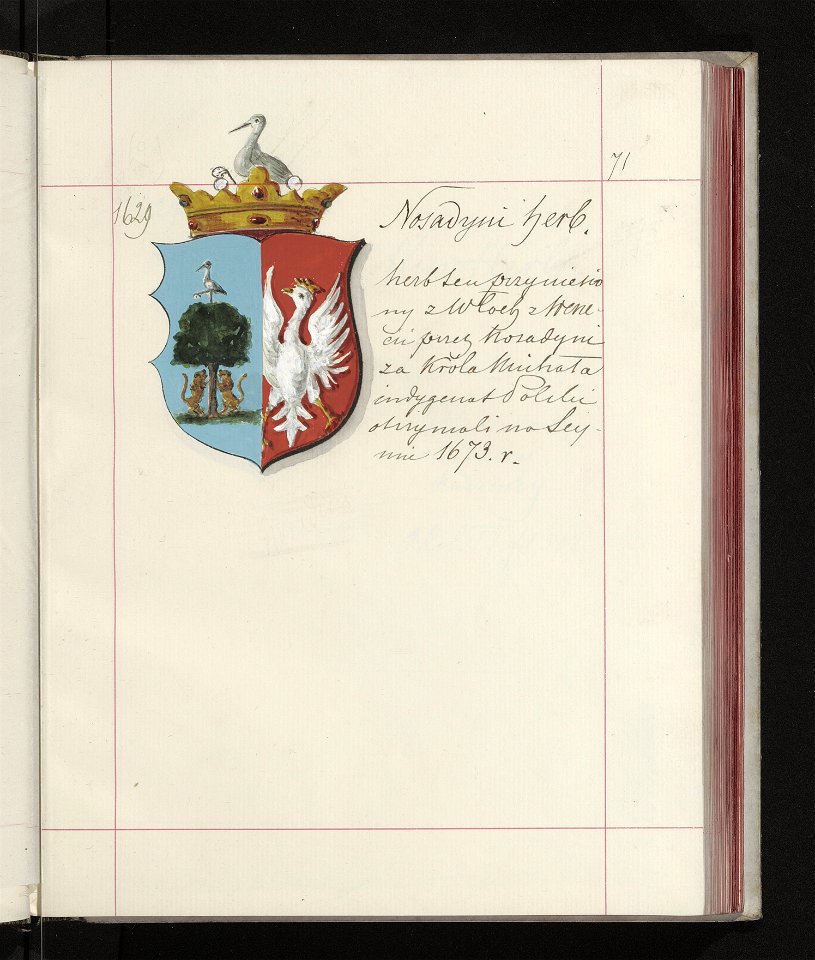 71
1629
Nosadyni herb.
herb ten przyniesio
ny z Włoch z Wene-
cii przez Nosadyni
za Króla Michała
indygenat Polski
otrzymali na Sey-
mie 1673. r.